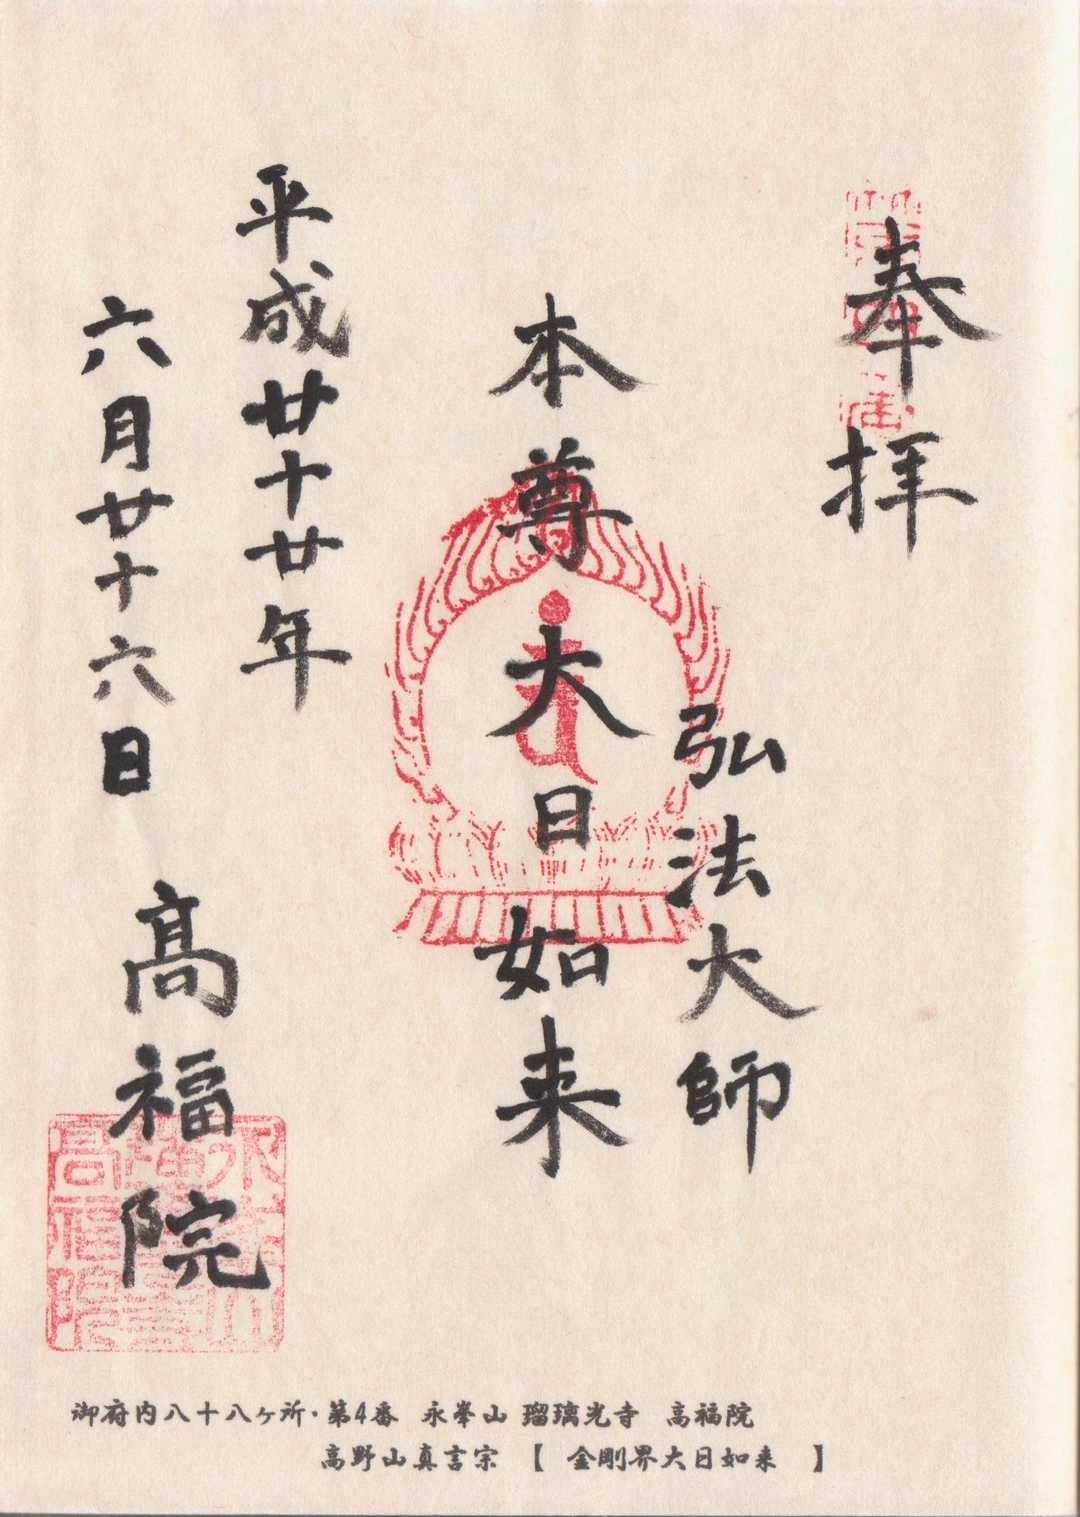 奉拝
弘法大師
本尊大日如来
平成廿十廿年
六月廿十六日
髙福院
御府内八十八ヶ所・第4番 永峯山 瑠璃光寺 高福院
高野山真言宗 【 金剛界大日如来 】